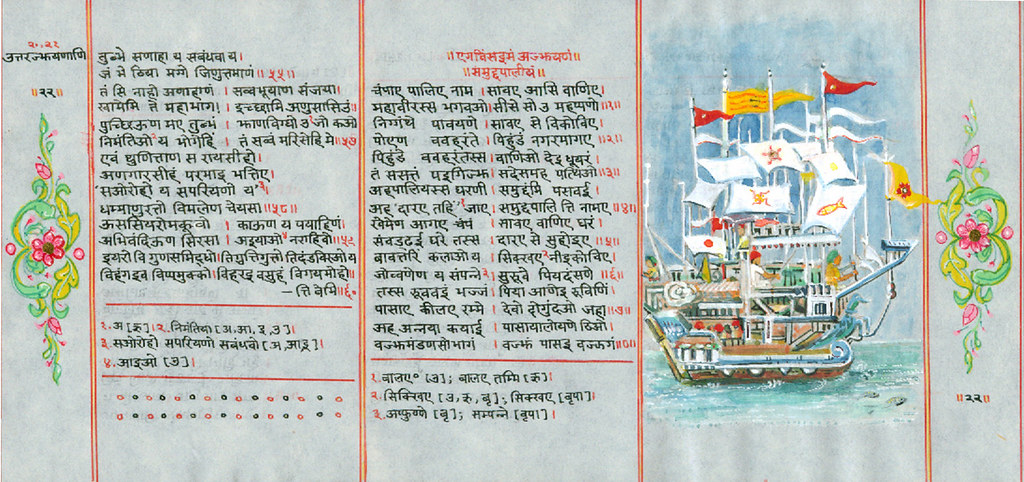 २०,२१
उत्तरज्झयणाणि
॥२२॥
तुब्भे सणाहा य सबंधवा य।
जं भे ठिया मग्गे जिणुत्तमाणं॥५५॥
तं सि नाहो अणाहाणं । सव्वभूयाण संजया।
खामेमि ते महाभाग। इच्छामि अणुसासिउं॥
पुच्छिऊण मए तुब्भं । झाणविग्घो उ जो कओ
निमंतिओ २य भोगेहिं । तं सव्वं मरिसेहि मे॥५७
एवं थुणित्ताण स रायसीहो।
अणगारसीहं परमाइ भत्तिए।
'सओरोहो य सपरियणो य'३
धम्माणुरत्तो विमलेण चेयसा॥५८॥
ऊससियरोमकूवो । काऊण य पयाहिणं।
अभिवंदिऊण सिरसा । अइयाओ४ नराहिवो॥५९
इयरो वि गुणसमिद्धो। तिगुत्तिगुत्तो तिदंडविरओ य
विहंग इव विप्पमुक्को। विहरइ वसुहं विगयमोहो॥
—त्ति बेमि॥६०
१. अ [ऋ]। २. निमंतिया [अ,आ,इ,उ]।
३. सओरोहो सपरियणो सबंधवो [अ,आ,इ]।
४. आइओ [उ]।
॥एगविंसइमं अज्झयणं॥
॥समुद्दपालीयं॥
चंपाए पालिए नाम । सावए आसि वाणिए।
महावीरस्स भगवओ। सीसे सो उ महप्पणो॥१॥
निग्गंथे पावयणे । सावए से विकोविए।
पोएण ववहरंते । पिहुंडं नगरमागए॥२॥
पिहुंडे ववहरंतस्स । वाणिओ देइ धूयरं।
तं ससत्तं पइगिज्झ । सदेसमह पत्थिओ॥३॥
अह पालियस्स घरणी । समुद्दंमि पसवई।
अह 'दारए तहिं'१ जाए । समुद्दपालि त्ति नामए॥४॥
खेमेण आगए चंपं । सावए वाणिए घरं।
संवड्ढई घरे तस्स । दारए से सुहोइए॥५॥
बावत्तरिं कलाओ य । सिक्खए२ नीइकोविए।
जोव्वणेण य संपन्ने३ । सुरूवे पियदंसणे॥६॥
तस्स रूववइं भज्जं । पिया आणेइ रूविणिं।
पासाए कीलए रम्मे । देवो दोगुंदओ जहा॥७॥
अह अन्नया कयाई । पासायालोयणे ठिओ।
वज्झमंडणसोभागं । वज्झं पासइ वज्झगं॥८॥
१. बालए° [उ]; बालए तम्मि [ऋ]
२. सिक्खिए [उ,ऋ,बृ]; सिक्खए [बृपा]।
३. अप्फुण्णे [बृ]; सम्पन्ने [बृपा]।
॥२२॥